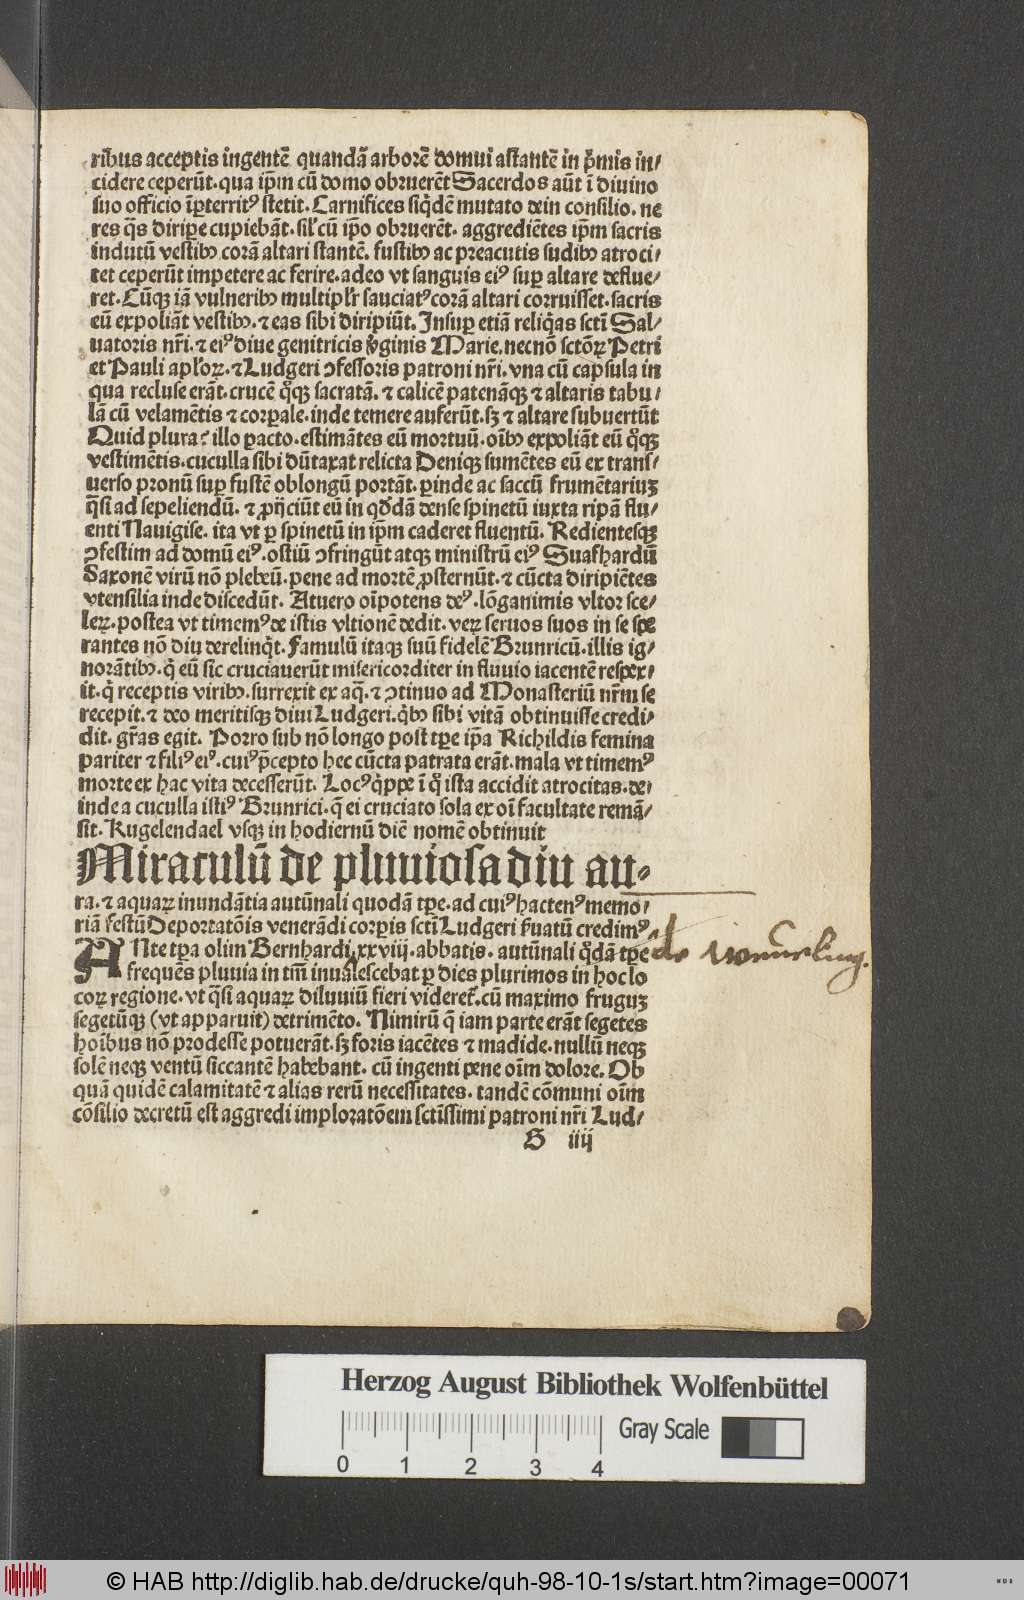 ribus acceptis ingentē quandā arborē domui astantē in p̄mis in⸗
cidere ceperūt. qua ip̄m cū domo obruerēt Sacerdos aūt ī diuino
suo officio īꝑterritꝰ stetit. Carnifices siq̄dē mutato dein consilio. ne
res q̄s diripe cupiebāt. sil̓ cū ip̄o obruerēt. aggrediētes ip̄m sacris
indutū vestibꝰ corā altari stantē. fustibꝰ ac preacutis sudibꝰ atroci⸗
ter ceperūt impetere ac ferire. adeo vt sanguis eiꝰ suꝑ altare deflue⸗
ret. Cūqꝫ iā vulneribꝰ multipl̓r sauciatꝰ corā altari corruisset. sacris
eū expoliāt vestibꝰ. ⁊ eas sibi diripiūt. Insuꝑ etiā reliq̄as sctī Sal⸗
uatoris nr̄i. ⁊ eiꝰ diue genitricis v̓ginis Marie. necnō sctōꝝ Petri
et Pauli apl̓oꝝ. ⁊ Ludgeri ꝯfessoris patroni nr̄i. vna cū capsula in
qua recluse erāt. crucē qͦqꝫ sacratā. ⁊ calicē patenāqꝫ ⁊ altaris tabu⸗
lā cū velamētis ⁊ corꝑale. inde temere auferūt. sꝫ ⁊ altare subuertūt
Quid plura? illo ꝑacto. estimātes eū mortuū. oībꝰ expoliāt eū qͦqꝫ
vestimētis. cuculla sibi dūtaxat relicta Deniqꝫ sumētes eū ex trans⸗
uerso pronū suꝑ fustē oblongū portāt. ꝑinde ac saccū frumētariuꝫ
q̄si ad sepeliendū. ⁊ ꝓijciūt eū in qd̓dā dense spinetū iuxta ripā flu⸗
enti Nauigise. ita vt ꝑ spinetū in ip̄m caderet fluentū. Redientesqꝫ
ꝯfestim ad domū eiꝰ. ostiū ꝯfringūt atqꝫ ministrū eiꝰ Suafhardū
Saxonē virū nō plebeū. pene ad mortē ꝓsternūt. ⁊ cūcta diripiētes
vtensilia inde discedūt. Atuero oīpotens deꝰ. lōganimis vltor sce⸗
leꝝ. postea vt timemꝰ de istis vltionē dedit. veꝝ seruos suos in se spe
rantes nō diu derelinq̄t. Famulū itaqꝫ suū fidelē Brunricū. illis ig⸗
norātibꝰ. q̄ eū sic cruciauerūt misericorditer in fluuio iacentē respex⸗
it. q̄ receptis viribꝰ. surrexit ex aq̄. ⁊ ꝯtinuo ad Monasteriū nr̄m se
recepit. ⁊ deo meritisqꝫ diui Ludgeri. q̄bꝰ sibi vitā obtinuisse credi⸗
dit. gr̄as egit. Porro sub nō longo post tꝑe ip̄a Richildis femina
pariter ⁊ filiꝰ eiꝰ. cuiꝰ p̄cepto hec cūcta patrata erāt. mala vt timemꝰ
morte ex hac vita decesserūt. Locꝰ q̄ppe ī qͦ ista accidit atrocitas. de⸗
inde a cuculla istiꝰ Brunrici. q̄ ei cruciato sola ex oī facultate remā⸗
sit. Kugelendael vsqꝫ in hodiernū diē nomē obtinuit
Miraculū de pluuiosa diu au⸗
ra. ⁊ aquaꝝ inundātia autūnali quodā tꝑe. ad cuiꝰ hactenꝰ memo⸗
riā festū Deportatōis venerādi corꝑis sctī Ludgeri ẜuatū credimꝰ
ANte tꝑa olim Bernhardi. xxviij. abbatis. autūnali qd̓dā tꝑe
frequēs pluuia in tm̄ inualescebat ꝑ dies plurimos in hoc lo
coꝝ regione. vt q̄si aquaꝝ diluuiū fieri videret̓. cū maximo frugꝫ
segetūqꝫ (vt apparuit) detrimēto. Nimirū q̄ iam parte erāt segetes
hoībus nō prodesse potuerāt. sꝫ foris iacētes ⁊ madide. nullū neqꝫ
solē neqꝫ ventū siccantē habebant. cū ingenti pene oīm dolore. Ob
quā quidē calamitatē ⁊ alias rerū necessitates. tandē cōmuni oīm
cōsilio decretū est aggredi imploratōem sctīssimi patroni nr̄i Lud⸗
S iiij
Herzog August Bibliothek Wolfenbüttel
Gray Scale
0 1 2 3 4
© HAB http://diglib.hab.de/drucke/quh-98-10-1s/start.htm?image=00071